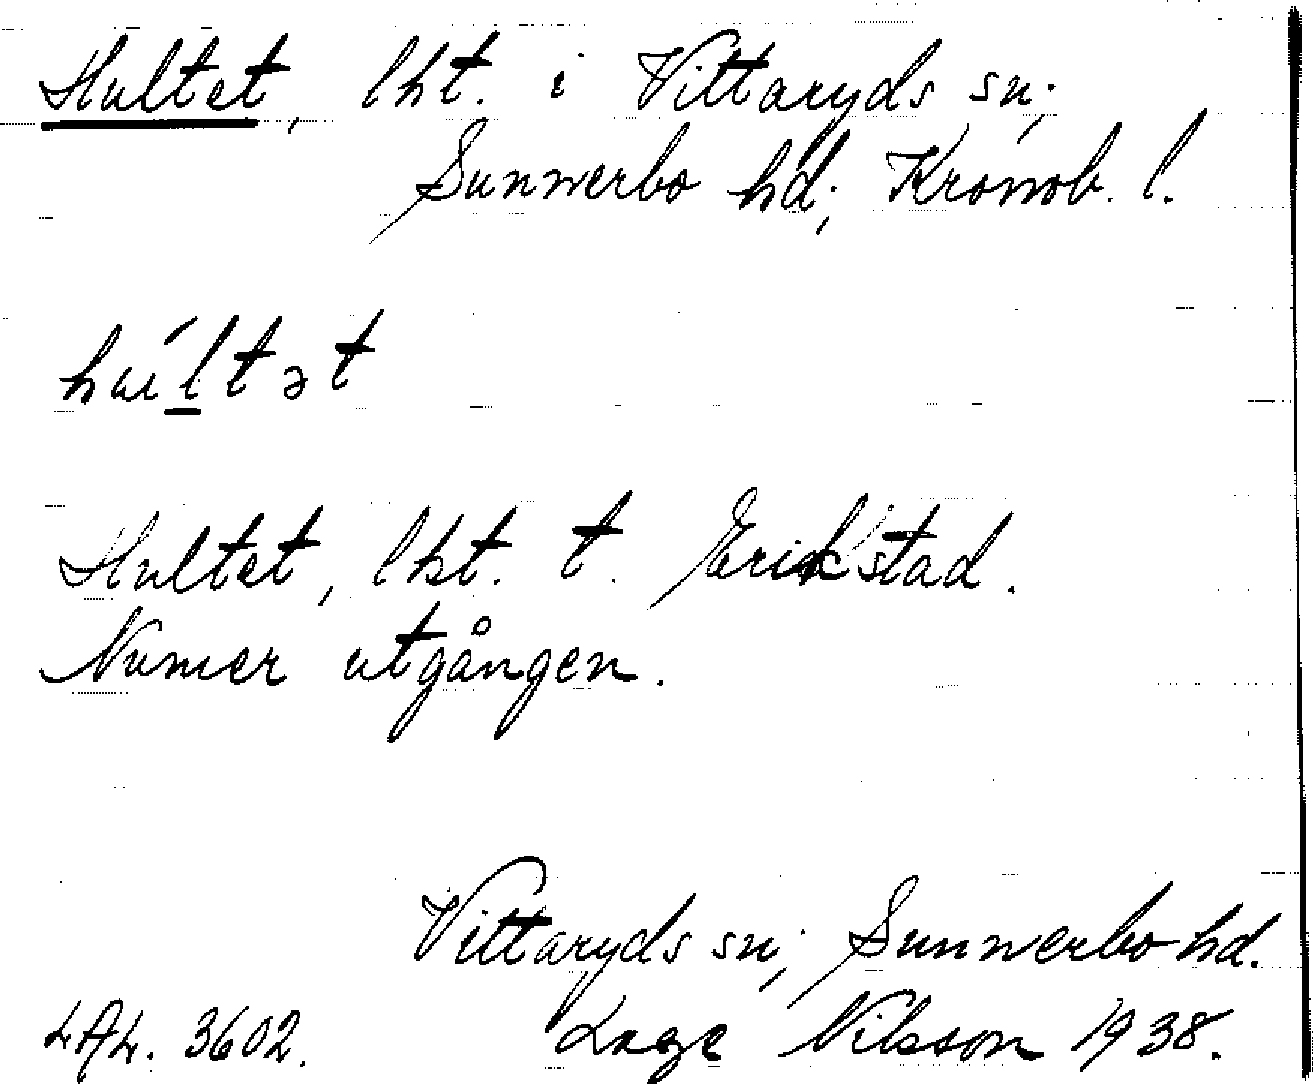 Hultet, lht. i Vittaryds sn;
Sunnerbo hd; Kronob. l.
hu´ltət
Hultet, lht. t. Erikstad.
Numer utgången.
Vittaryds sn; Sunnerbo hd.
LAL. 3602. Lage Nilsson 1938.